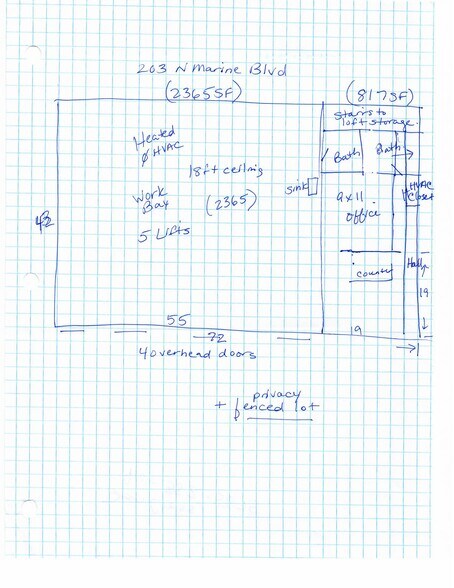 203 N Marine Blvd
(2365SF)
(817SF)
Stairs to
loft storage
Heated
Ø HVAC
18ft ceiling
Bath
Bath
sink
HVAC
Closet
Work
Bay
(2365)
9x11
office
5 Lifts
43
counter
Hall
19
55
72
19
4 overhead doors
privacy
+ fenced lot